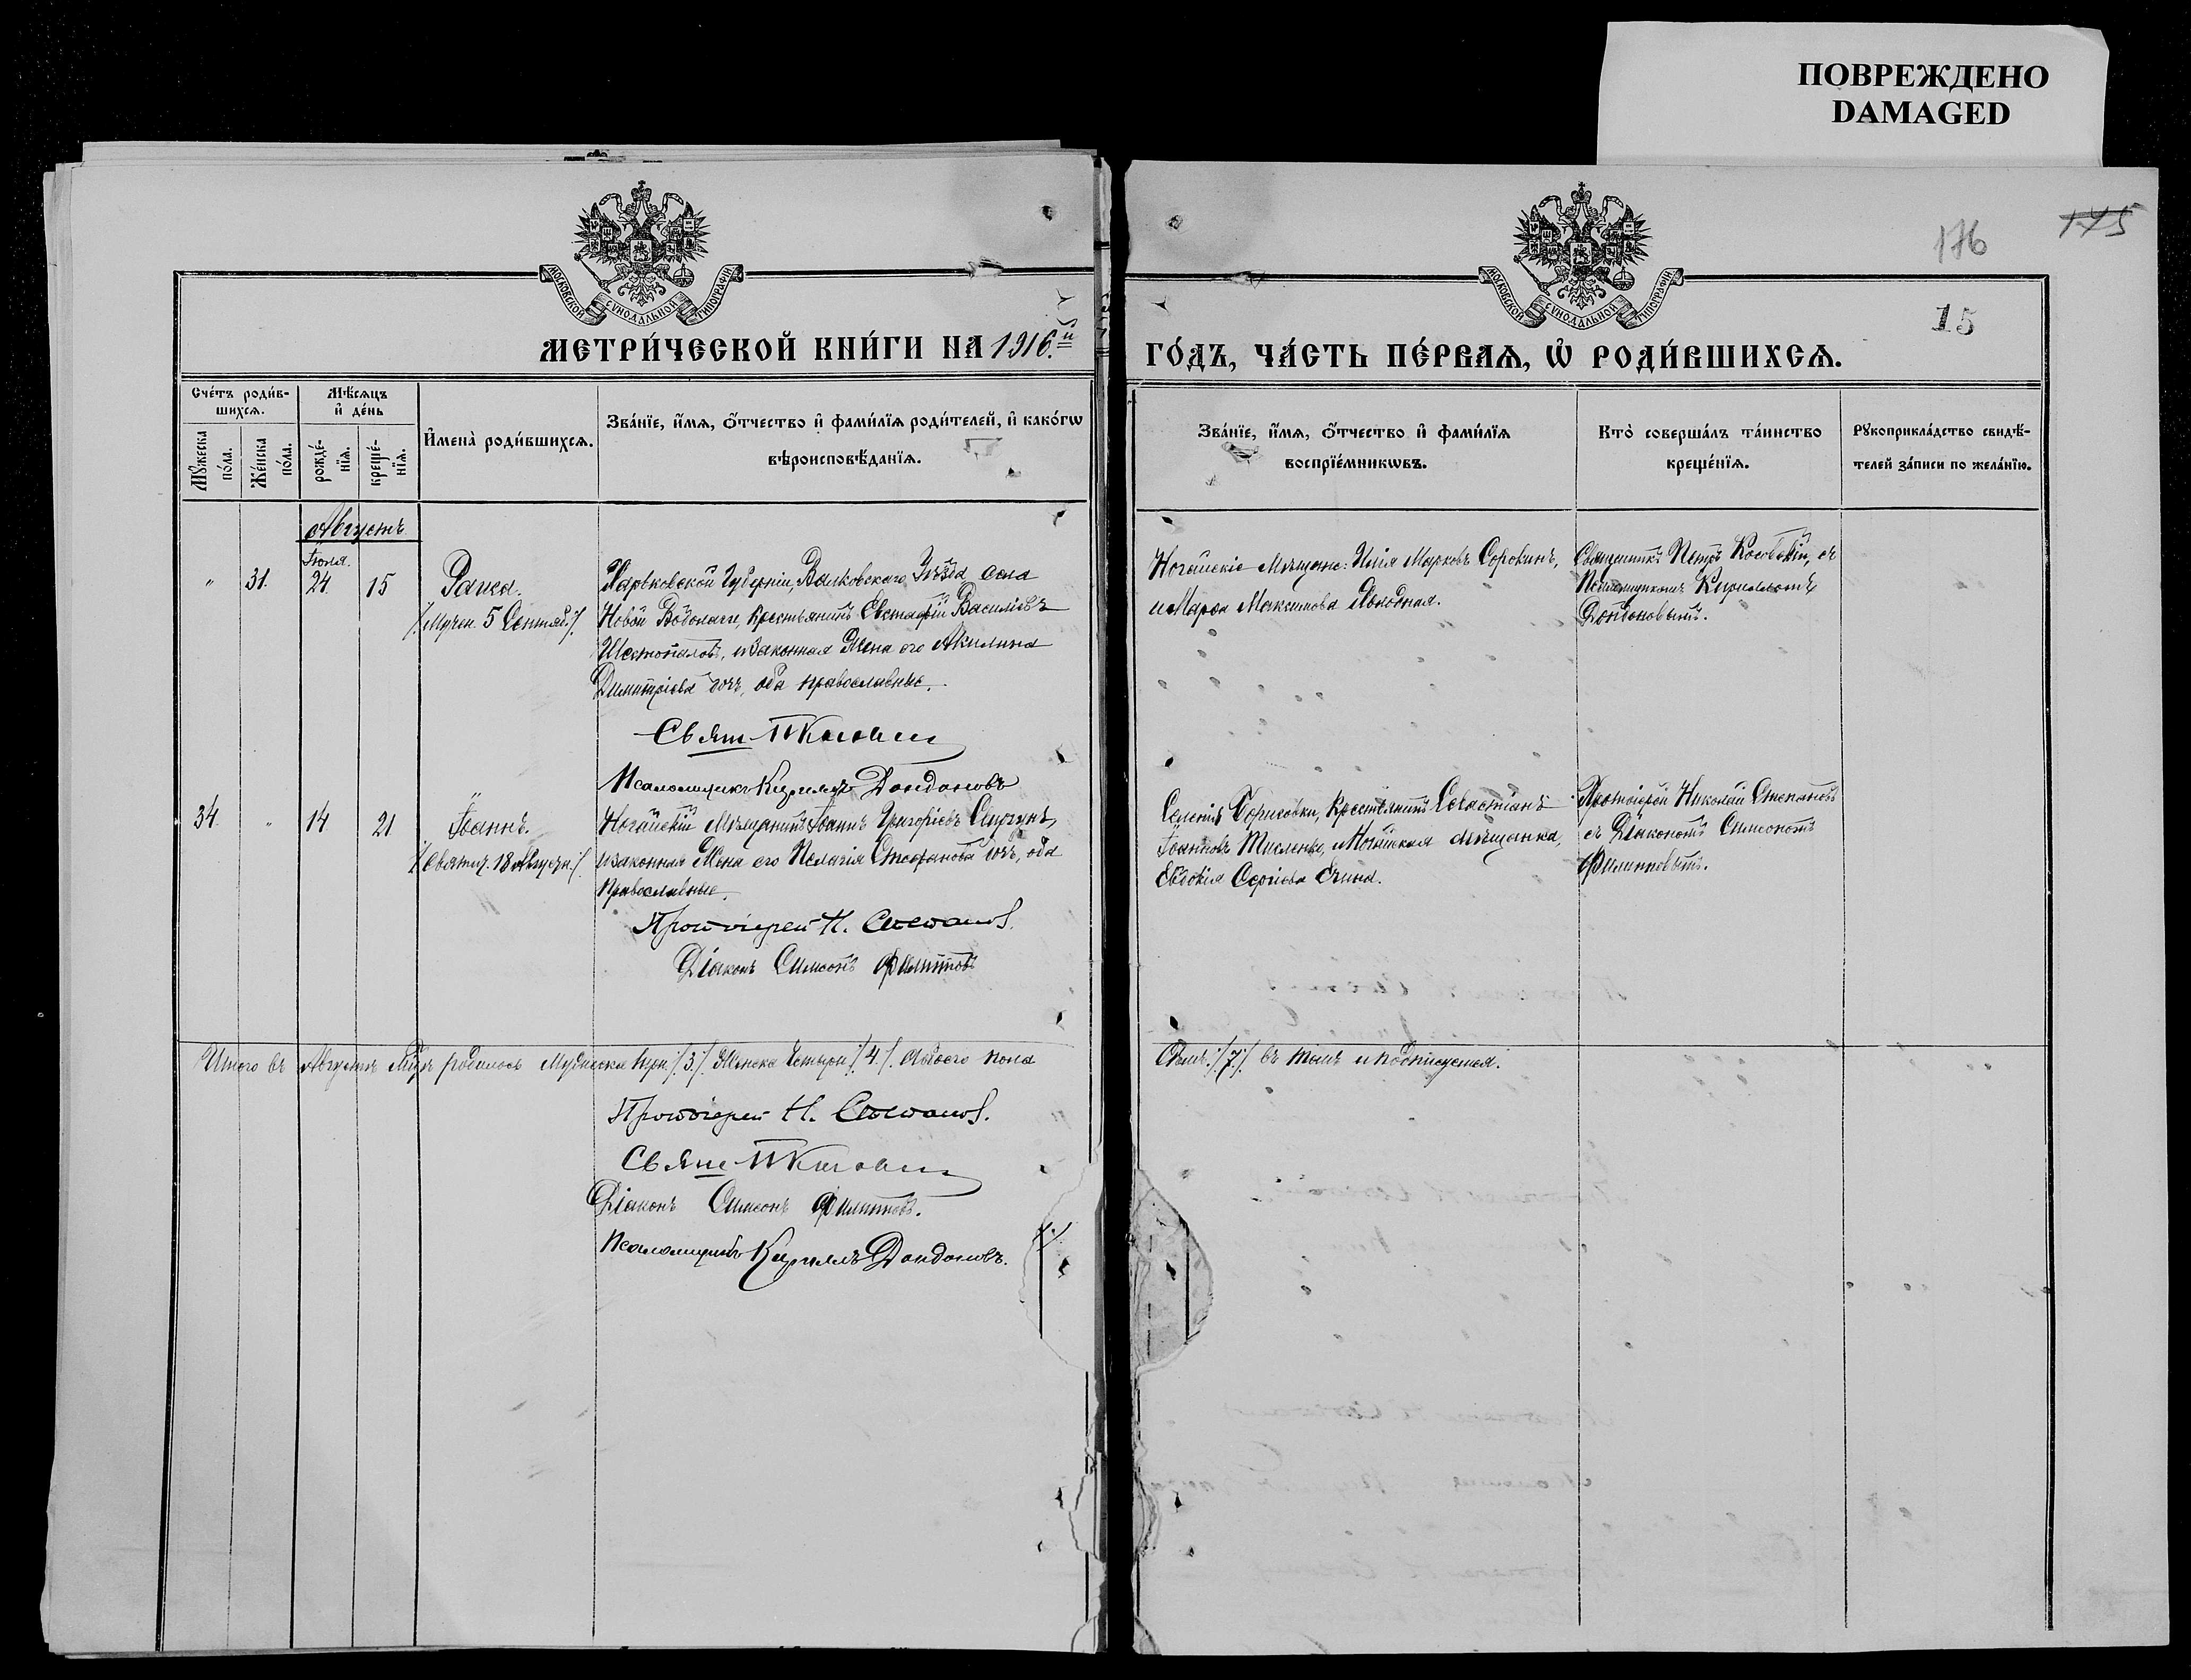 ПОВРЕЖДЕНО
DAMAGED
176
175
15
МОСКОВСКОЙ СѴНОДАЛЬНОЙ ТИПОГРАФІИ
МОСКОВСКОЙ СѴНОДАЛЬНОЙ ТИПОГРАФІИ
МЕТРИ́ЧЕСКОЙ КНИ́ГИ НА 1916.й
ГО́ДЪ, ЧА́СТЬ ПЕ́РВАѦ, Ѡ҆ РОДИ́ВШИХСѦ.
Сче́тъ роди́в-
шихсѧ.
Мѣ́сѧцъ
и҆ де́нь
Мꙋ́жеска
по́ла.
Же́нска
по́ла.
рожде́-
нїѧ.
креще́-
нїѧ.
И҆мена̀ роди́вшихсѧ.
Зва́нїе, и҆́мѧ, ѻ҆́тчество и҆ фами́лїѧ роди́телей, и҆ како́гѡ
вѣроисповѣ́данїѧ.
Зва́нїе, и҆́мѧ, ѻ҆́тчество и҆ фами́лїѧ
воспрїе́мникѡвъ.
Кто̀ соверша́лъ та́инство
креще́нїѧ.
Рꙋкоприкла́дство свидѣ́-
телей за́писи по жела́нїю.
Августъ
Іюля.
" 31. 24. 15 Раиса.
/:Мучен. 5 Сентяб.:/
Харьковской Губерніи, Валковскаго Уѣзда села
Новой Водолаги, Крестьянинъ Евстафій Василіевъ
Шестопаловъ, и законная Жена его Акилина
Димитріева дочь, оба православные.
Свящ П Косовскій
Псаломщикъ Кириллъ Дондоновъ
Ногайскіе Мѣщане: Илія Марковъ Сорокинъ,
и Марѳа Максимова Яводная.
Священникъ Петръ Косовскій, съ
Псаломщикомъ Кирилломъ
Дондоновымъ.
34. " 14 21 Іоаннъ.
/:Святит. 18 Августа:/
Ногайскій Мѣщанинъ Іоаннъ Григоріевъ
и законная Жена его Пелагія Стефанова дочь, оба
Православные.
Протоіерей Н. Степановъ.
Діаконъ Симеонъ Филипповъ
Селенія Борисовки, Крестьянинъ Севастіанъ
Іоанновъ Тисленко, и Ногайская Мѣщанка,
Евдокія Сергіева
Протоіерей Николай Степановъ
съ Діакономъ Симеономъ
Филипповымъ.
Итого въ Августѣ мцѣ родилось Мужеска три /:3:/. Женска Четыре /:4:/. Обоего пола
Семь /:7:/. въ томъ и подписуемся.
Протоіерей Н. Степановъ.
Свящ П Косовскій
Діаконъ Симеонъ Филипповъ.
Псаломщикъ Кириллъ Дондоновъ.